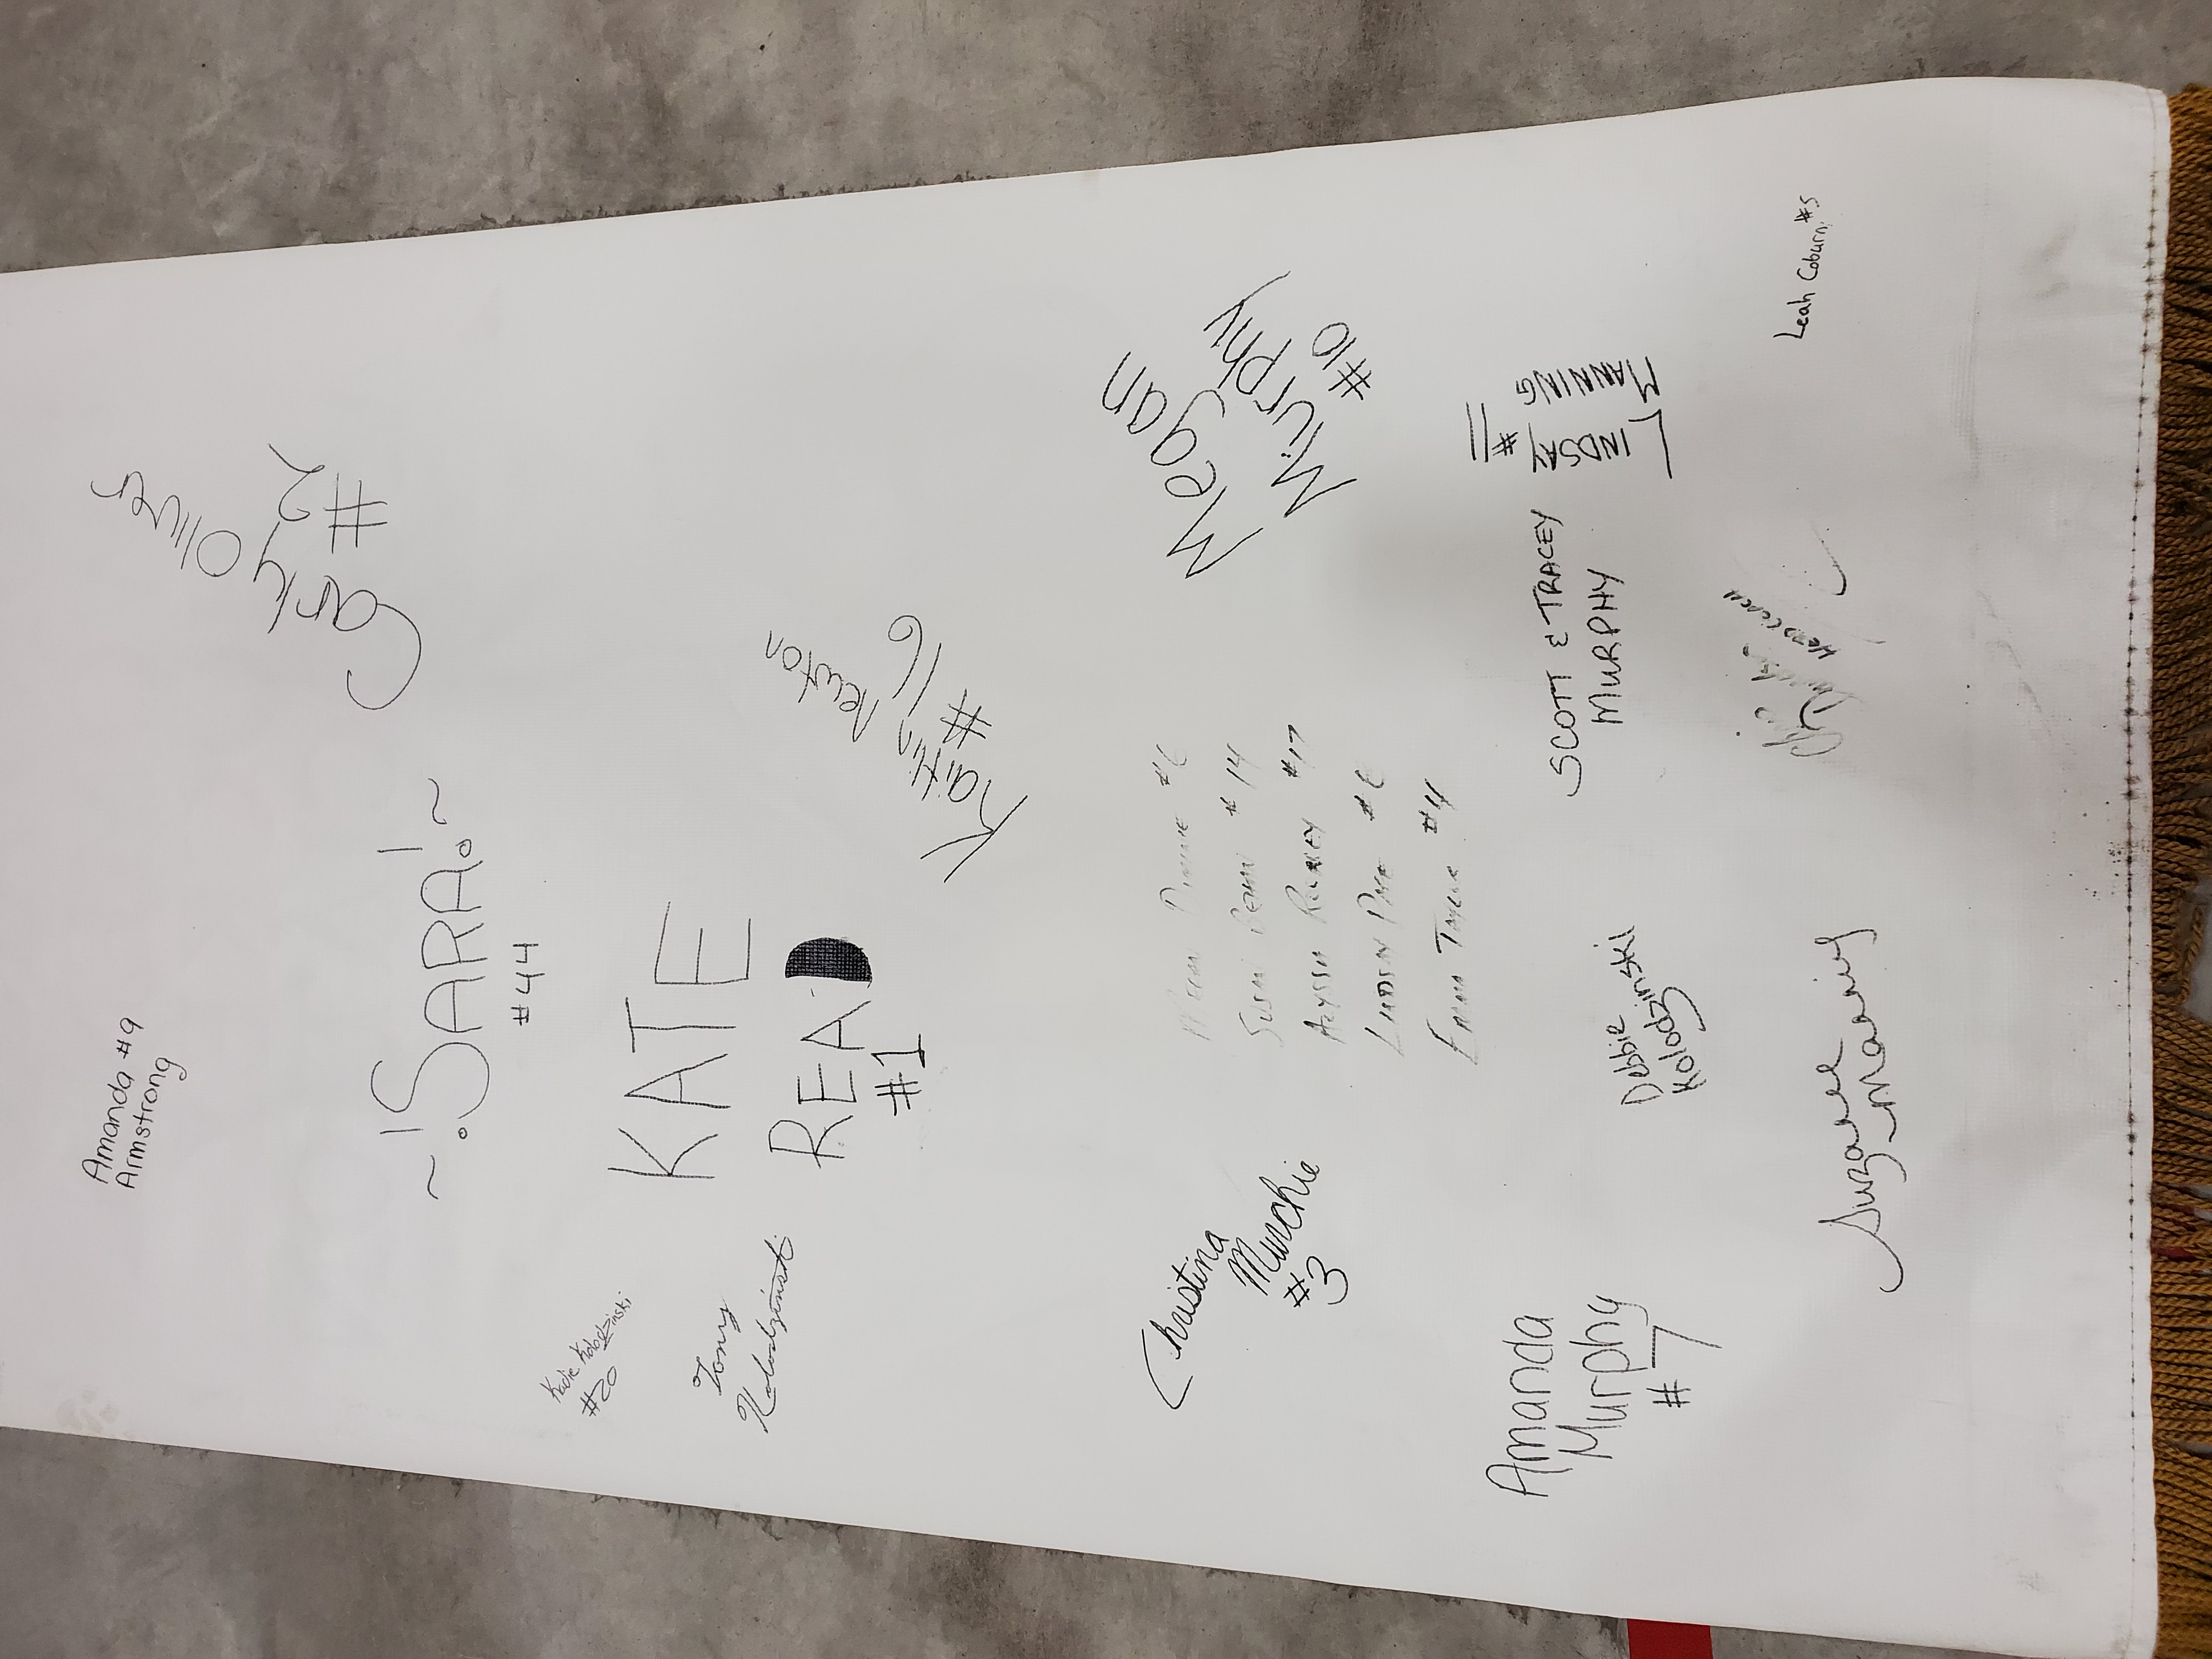 Amanda #9
Armstrong
Carly Oliver
#2
~ ¡SARA! ~
#44
KATE
READ
#1
Kaitlin Newton
#16
Kadie Kolodzinski
#20
Tony
Kolodzinski
Megan
Murphy
#10
Christina
Murchie
#3
#6
Susan #14
Alyssa #17
Lindsay #6
Emma Taylor #4
LINDSAY
MANNING
#11
SCOTT & TRACEY
MURPHY
Amanda
Murphy
#7
Debbie
Kolodzinski
HEAD COACH
Leah Coburn #5
Suzanne
Manning